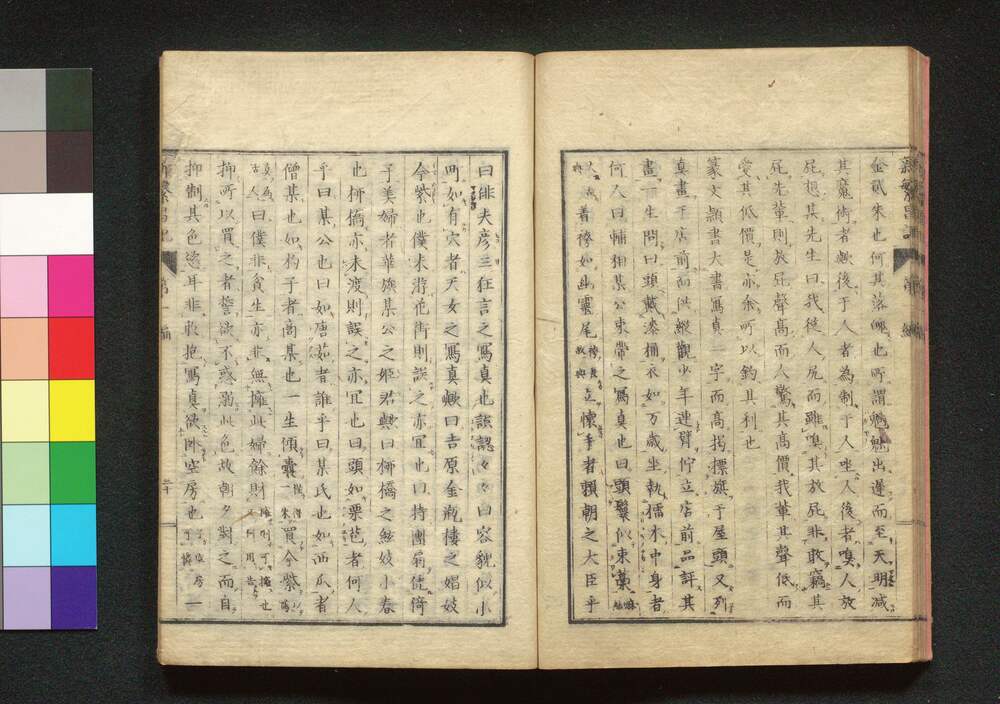 金貳朱也何其落魄也所謂魑魅出遂而至天明減
其魔術者歟後于人者為制于人坐人後者嗅人放
屁想其先生曰我從人尻而雖嗅其放屁非敢竊其
屁先輩則放屁聲高而人驚其高價我輩其聲低而
愛其低價是亦余所以釣其利也
篆文顔書大書寫真二字而高揭標旗于屋頭又列
真畫于店前而供縱觀少年連臂佇立店前品評其
畫一生問曰頭戴漆桶衣如万歲坐執擂木中身者
何人曰輔相某公束帶之寫真也曰頭鬘似束藁
着袴如幽靈尾立懷手者賴朝之大臣乎
曰俳夫彥三狂言之寫真也誤認々々曰容貌似小
町如有穴者天女之寫真歟曰吉原金瓶樓之娼妓
今紫也僕未游花街則誤之亦宜也曰持團扇凭倚
子美婦者華族某公之姬君歟曰柳橋之絃妓小春
也柳橋亦未渡則誤之亦宜也曰頭如栗芭者何人
乎曰某公也曰如唐茄者誰乎曰某氏也如西瓜者
僧某也如杓子者商某也一生傾囊一朱買今紫
古人曰僕非貪生亦非無擁此婦餘財
抑所以買之者誓欲不惑溺此色故朝夕對之而自
抑制其色慾耳非敢抱寫真欲臥空房也